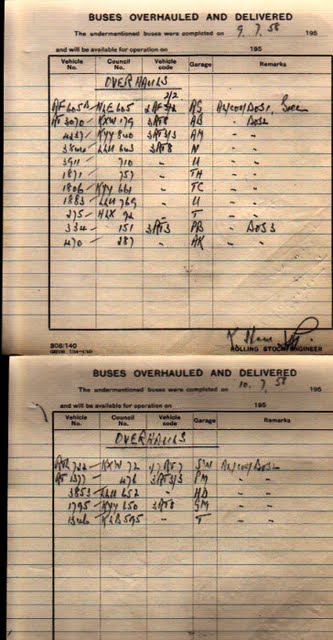 BUSES OVERHAULED AND DELIVERED
The undermentioned buses were completed on 9. 7. 58 195
and will be available for operation on 195
Vehicle No. Council No. Vehicle code Garage Remarks
OVERHAULS
2/2
RF 605 NLE 605 AS
RT 3070 KXW 179 3RT8 AB " DOSL
4237 KYY 840 3RT3/3 AM " "
3844 LLU 643 3RT8 N " "
3911 710 " U " "
1871 757 " TH " "
1806 KYY 661 " TC " "
1883 LLU 769 " U " "
275 HLX 92 " T " "
334 151 3RT3 PB " DOS3
470 287 " AK " "
806/140
ROLLING STOCK ENGINEER
BUSES OVERHAULED AND DELIVERED
The undermentioned buses were completed on 10. 7. 58 195
and will be available for operation on 195
Vehicle No. Council No. Vehicle code Garage Remarks
OVERHAULS
722 KXW 72 SW
RT 1377 476 3RT3/3 PM " "
3853 LLU 652 " HD " "
1795 KYY 650 3RT8 GM " "
KLB 595 " T " "